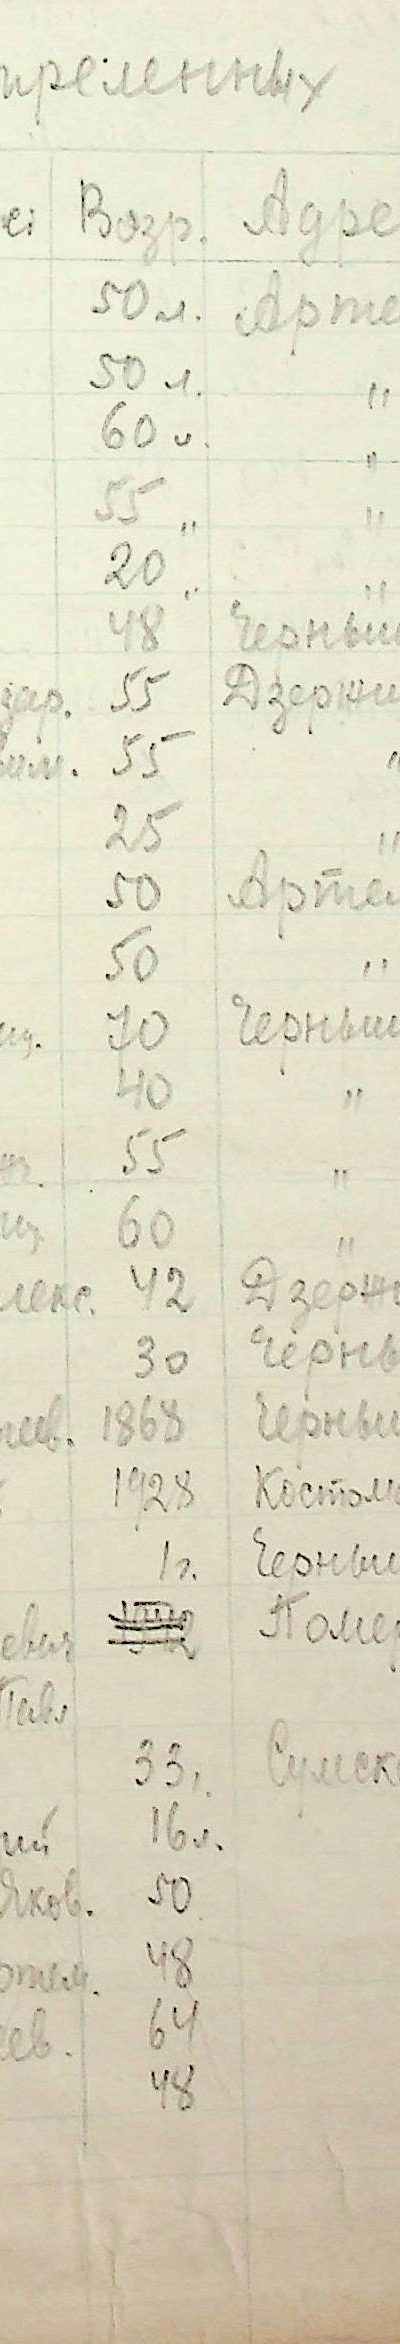 треленных
Возр. Адре
50 л. Арте
50 л. "
60 л. "
55 " "
20 " "
48 Черныш
зар. 55 Дзержи
вим. 55 "
25 "
50 Артел
50 "
70 Черныш
40 "
55 "
60 "
лекс. 42 Дзержи
30 Черны
еев. 1868 Черныш
1928 Костом
1 г. Черныш
евич Помер
Павл
33 г. Сумск
ий 16 л.
Яков. 50
ртем. 48
еев. 64
48